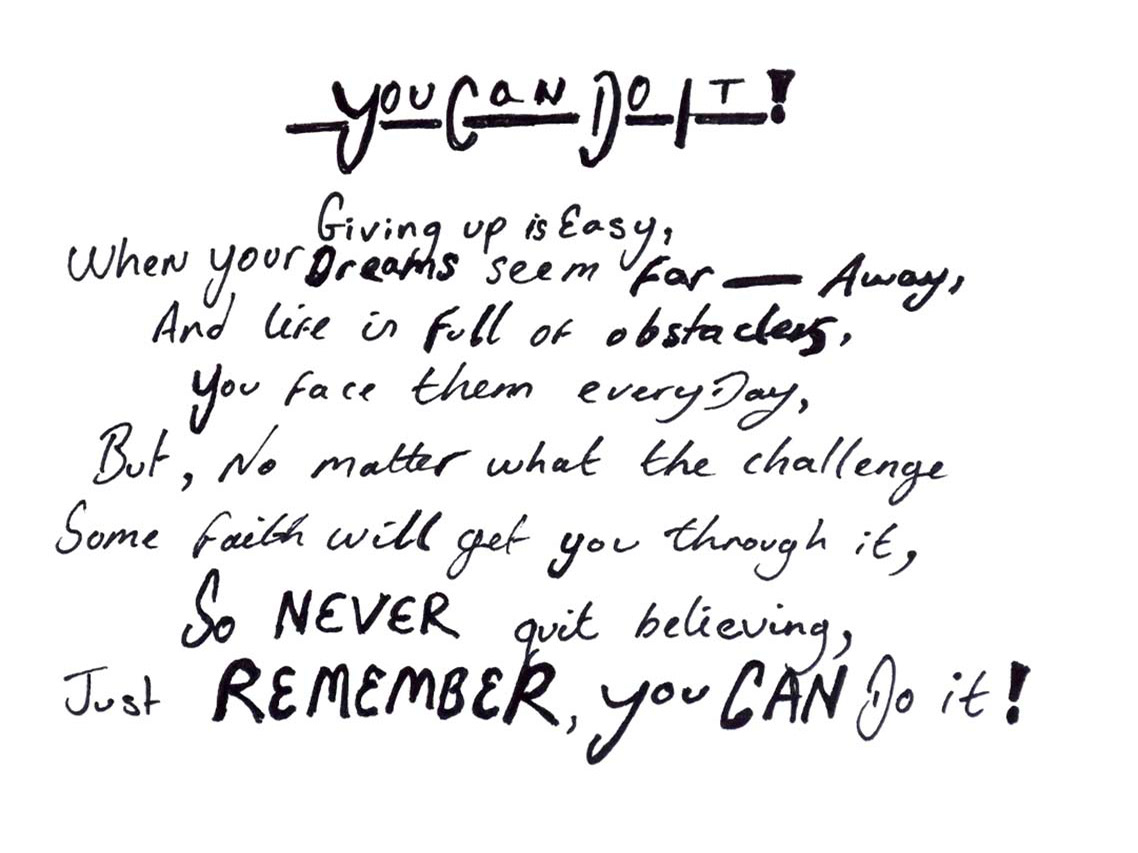 You CaN DO IT!
Giving up is Easy,
When your Dreams seem far — Away,
And life is full of obstacles,
You face them everyDay,
But, No matter what the challenge
Some faith will get you through it,
So NEVER quit believing,
Just REMEMBER, you CAN Do it!